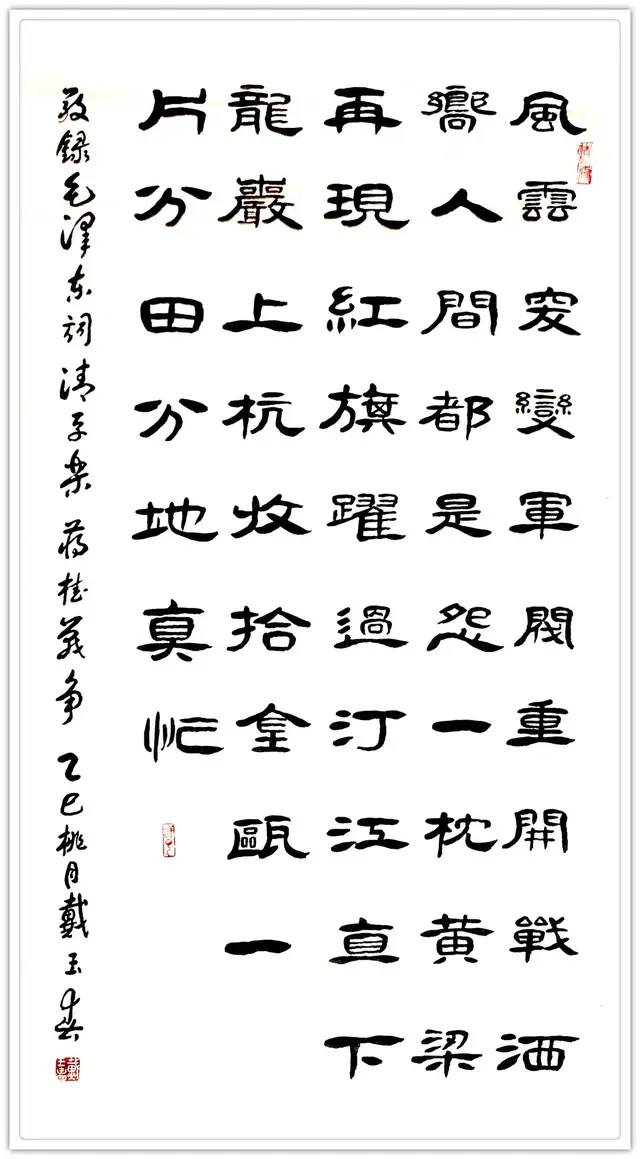 風雲突變軍閥重開戰洒
嚮人間都是怨一枕黄梁
再現紅旗躍過汀江直下
龍巖上杭收拾金甌一
片分田分地真忙
敬録毛泽东词清平乐 蒋桂战争 乙巳桃月戴玉春